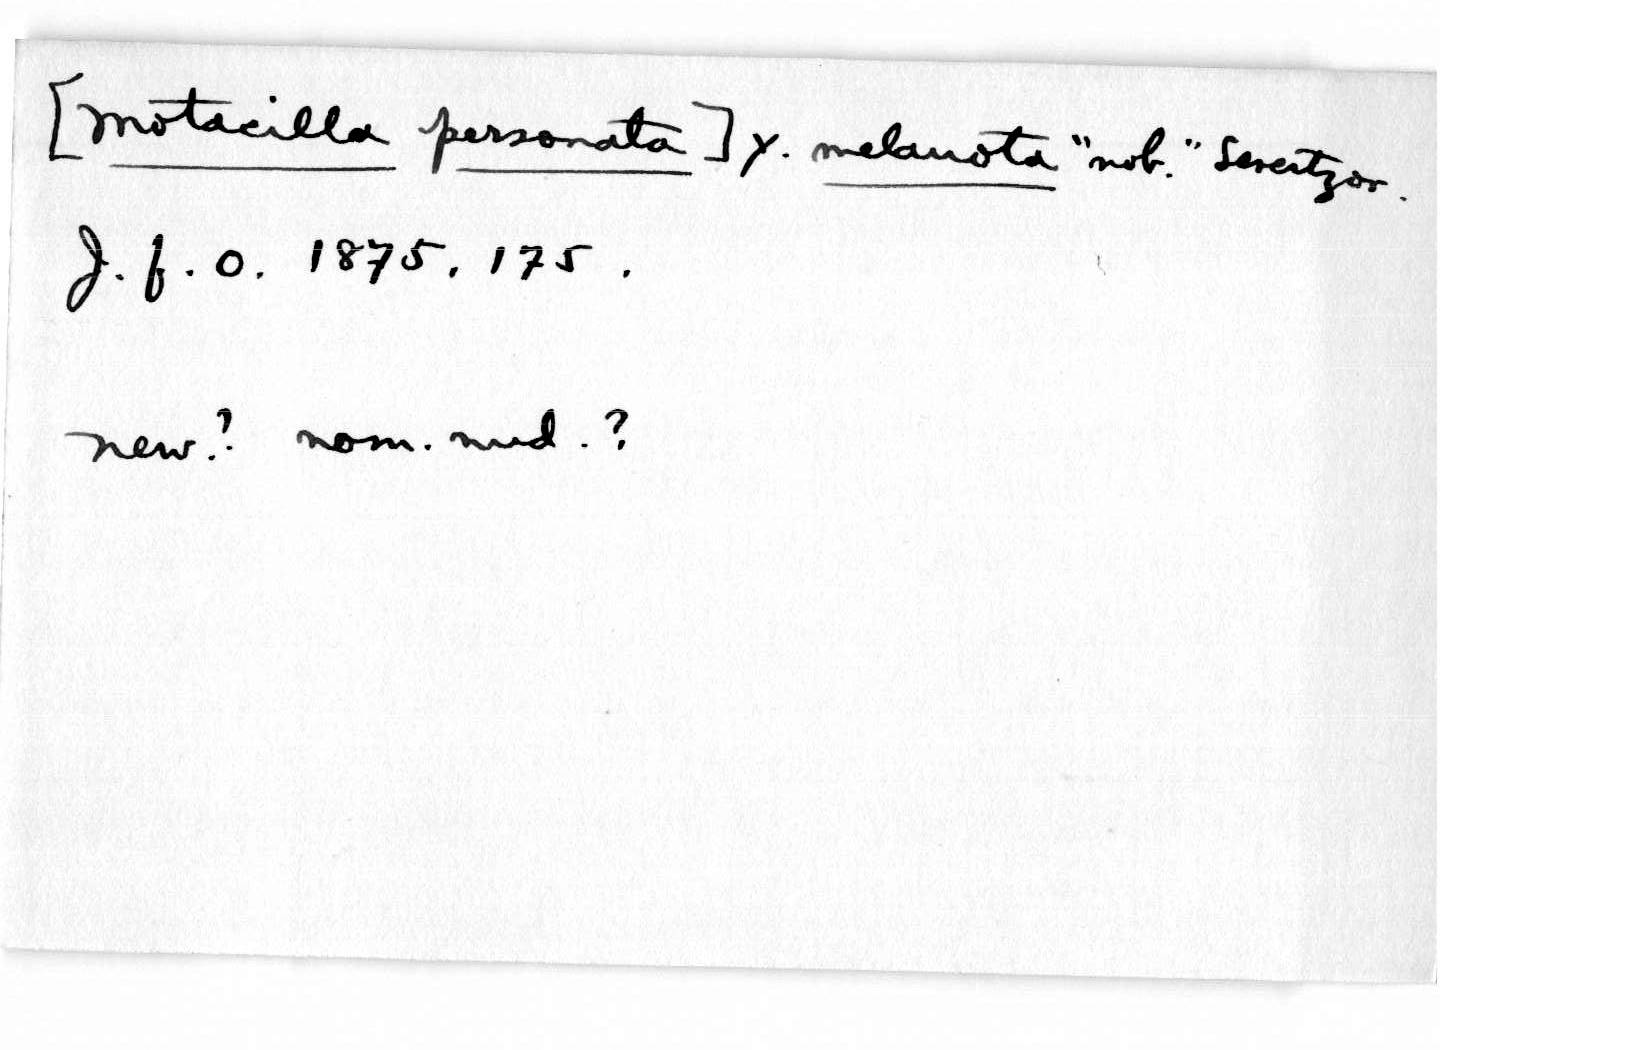 [Motacilla personata] γ. melanota "nob." Severtzov.
J. f. O. 1875, 175.
new? nom. nud.?